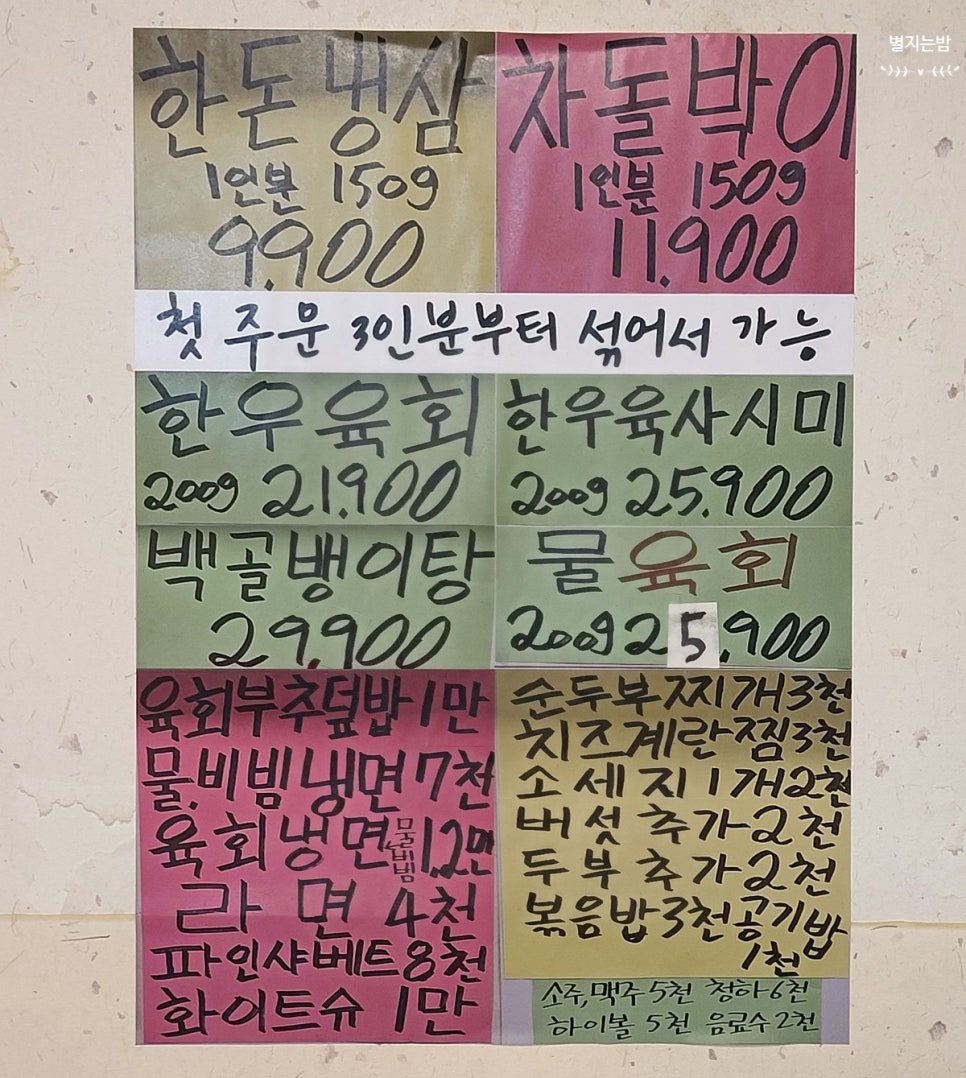 별지는밤
한돈냉삼
1인분 150g
9.900
차돌박이
1인분 150g
11.900
첫 주문 3인분부터 섞어서 가능
한우육회
200g 21.900
한우육사시미
200g 25.900
백골뱅이탕
29.900
물육회
200g 25.900
육회부추덮밥 1만
물.비빔냉면 7천
육회냉면 물 비빔 1.2만
라면 4천
파인샤베트 8천
화이트슈 1만
순두부찌개 3천
치즈계란찜 3천
소세지 1개 2천
버섯추가 2천
두부추가 2천
볶음밥 3천 공기밥
1천
소주,맥주 5천 청하 6천
하이볼 5천 음료수 2천